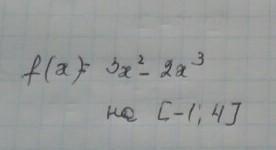 f(x)= 3x² - 2x³
на [-1; 4]